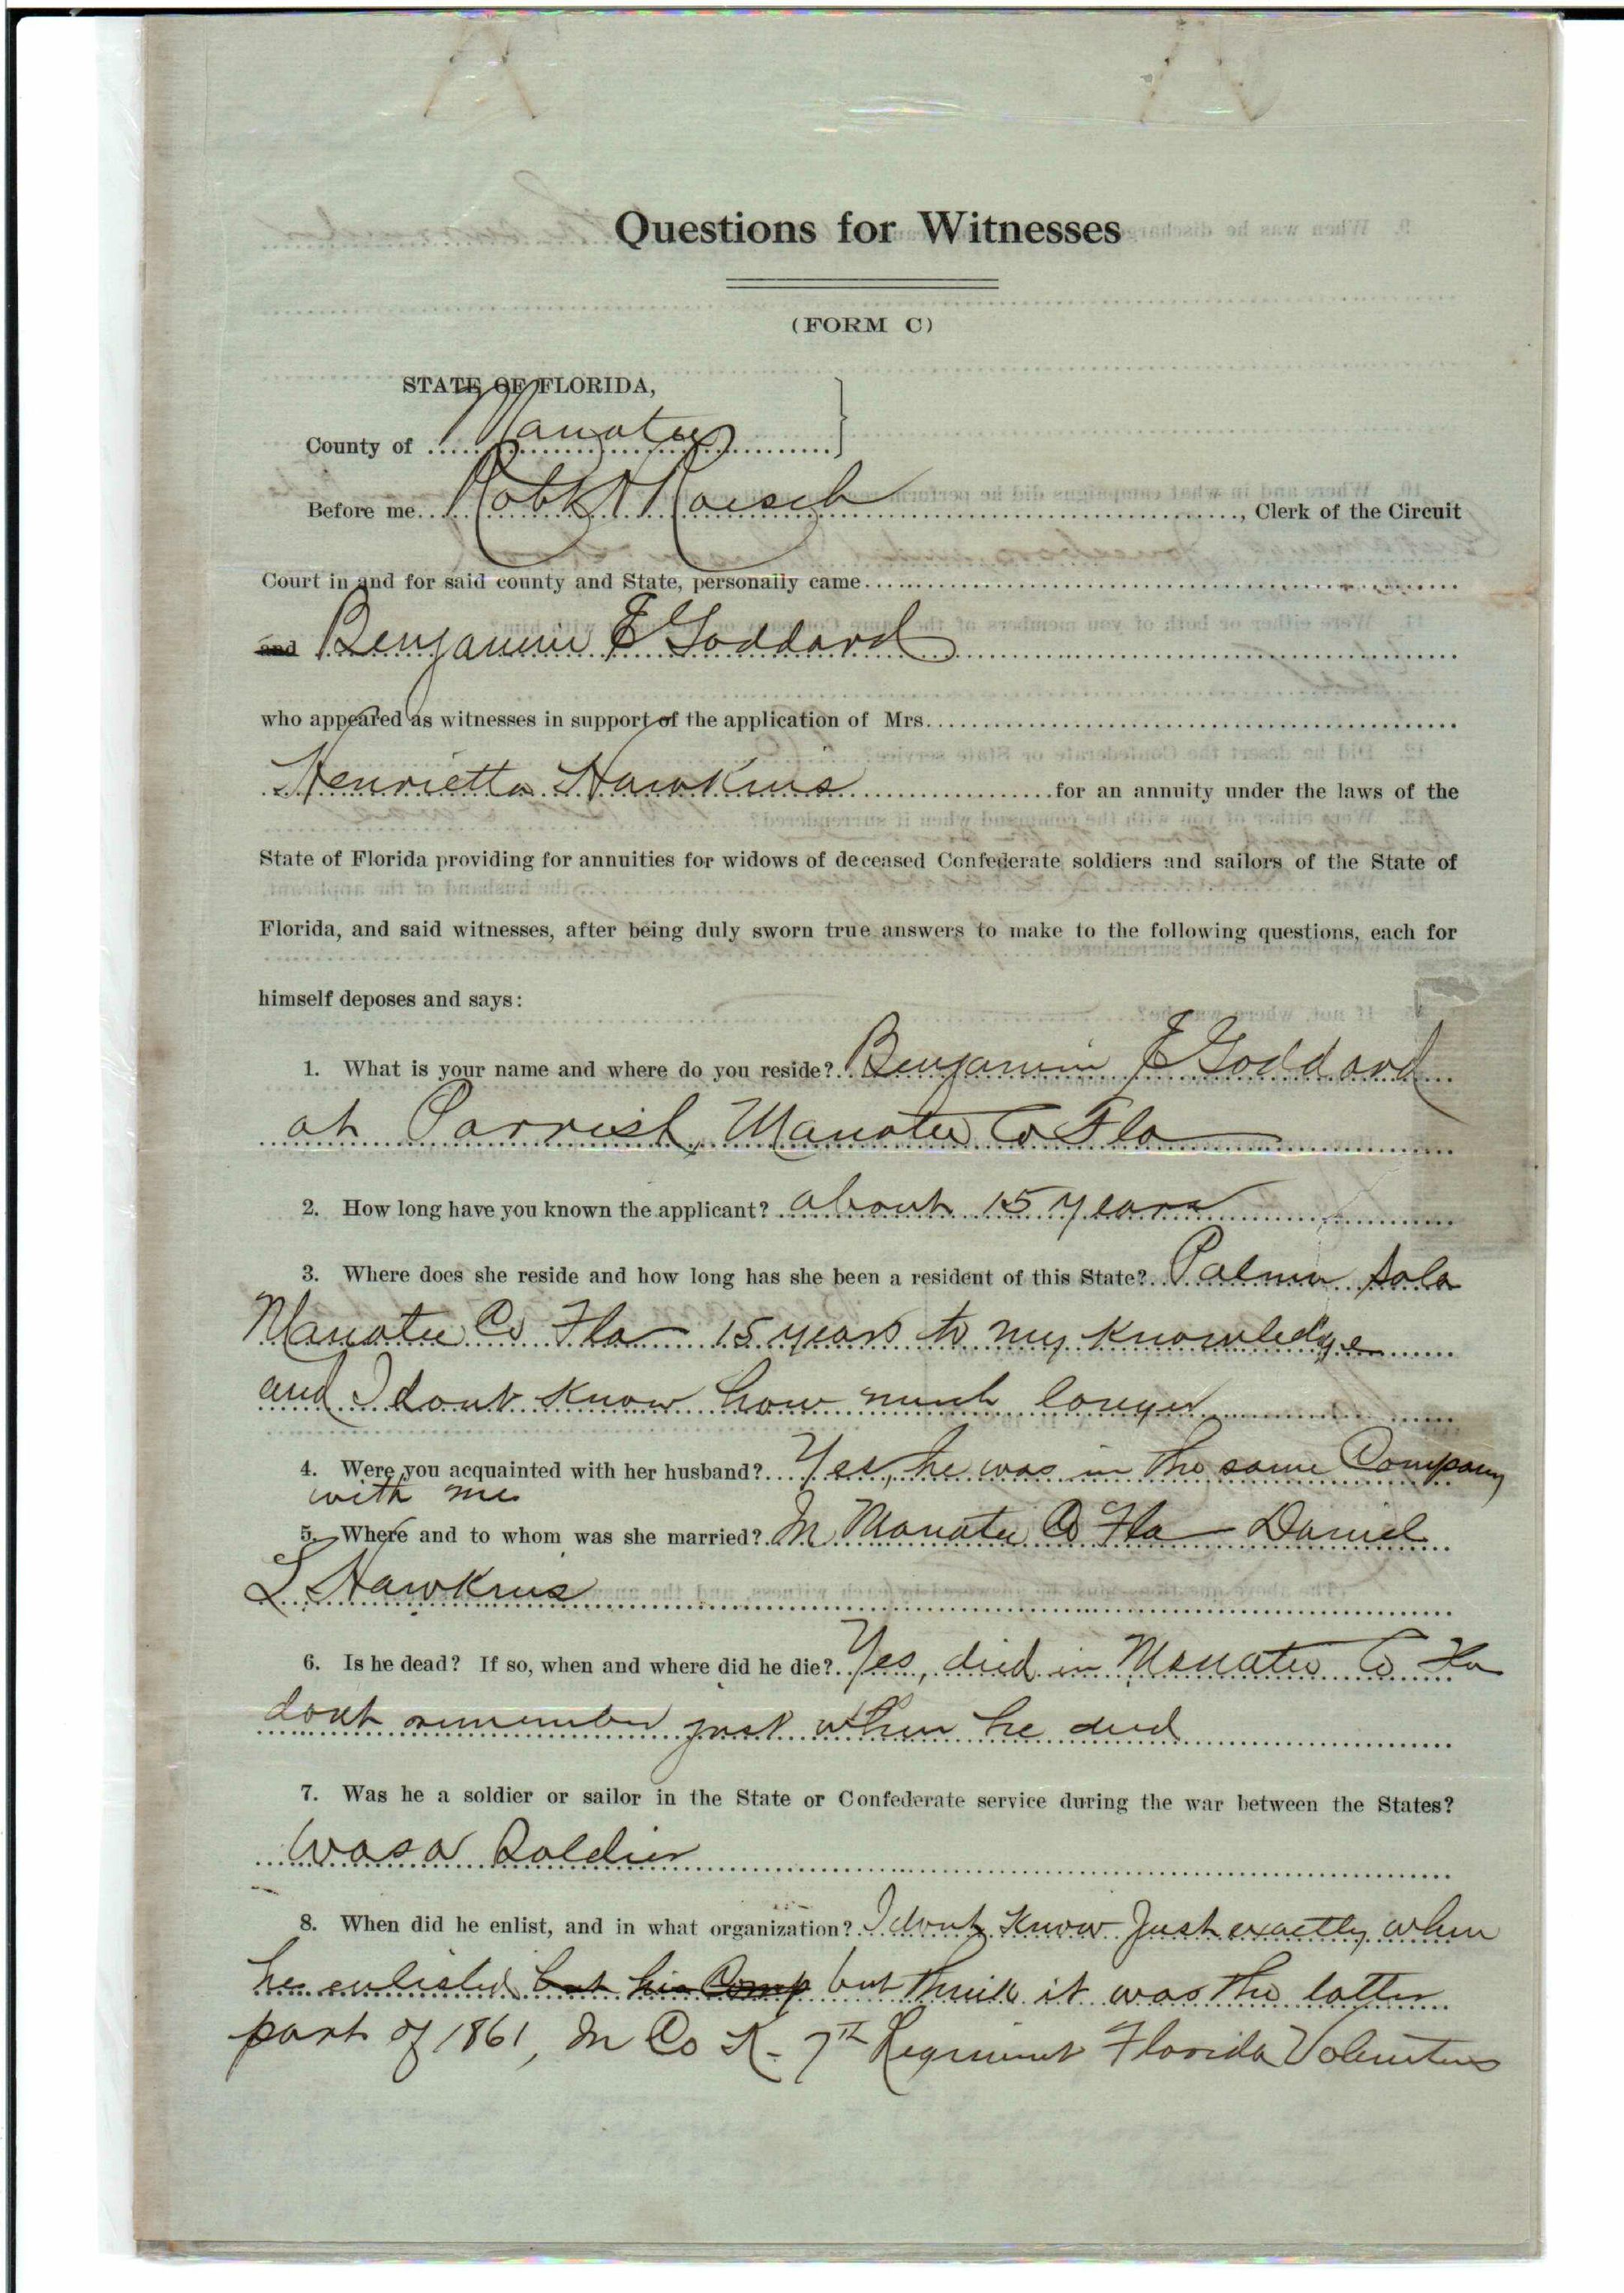 Questions for Witnesses
(FORM C)
STATE OF FLORIDA,
County of Manatee
Before me Robt H Roesch, Clerk of the Circuit
Court in and for said county and State, personally came
and Benjamin E Goddard
who appeared as witnesses in support of the application of Mrs.
Henrietta Hawkins for an annuity under the laws of the
State of Florida providing for annuities for widows of deceased Confederate soldiers and sailors of the State of
Florida, and said witnesses, after being duly sworn true answers to make to the following questions, each for
himself deposes and says:
1. What is your name and where do you reside? Benjamin E Goddard
at Parrish, Manatee Co Fla
2. How long have you known the applicant? about 15 years
3. Where does she reside and how long has she been a resident of this State? Palma Sola
Manatee Co Fla 15 years to my knowledge
and I dont know how much longer
4. Were you acquainted with her husband? Yes, he was in the same Company
with me
5. Where and to whom was she married? In Manatee Co Fla - Daniel
S Hawkins
6. Is he dead? If so, when and where did he die? Yes, died in Manatee Co Fla
dont remember just when he died
7. Was he a soldier or sailor in the State or Confederate service during the war between the States?
Was a Soldier
8. When did he enlist, and in what organization? I dont know Just exactly when
he enlisted but his Comp but think it was the latter
part of 1861, In Co K - 7th Regiment Florida Volunteers